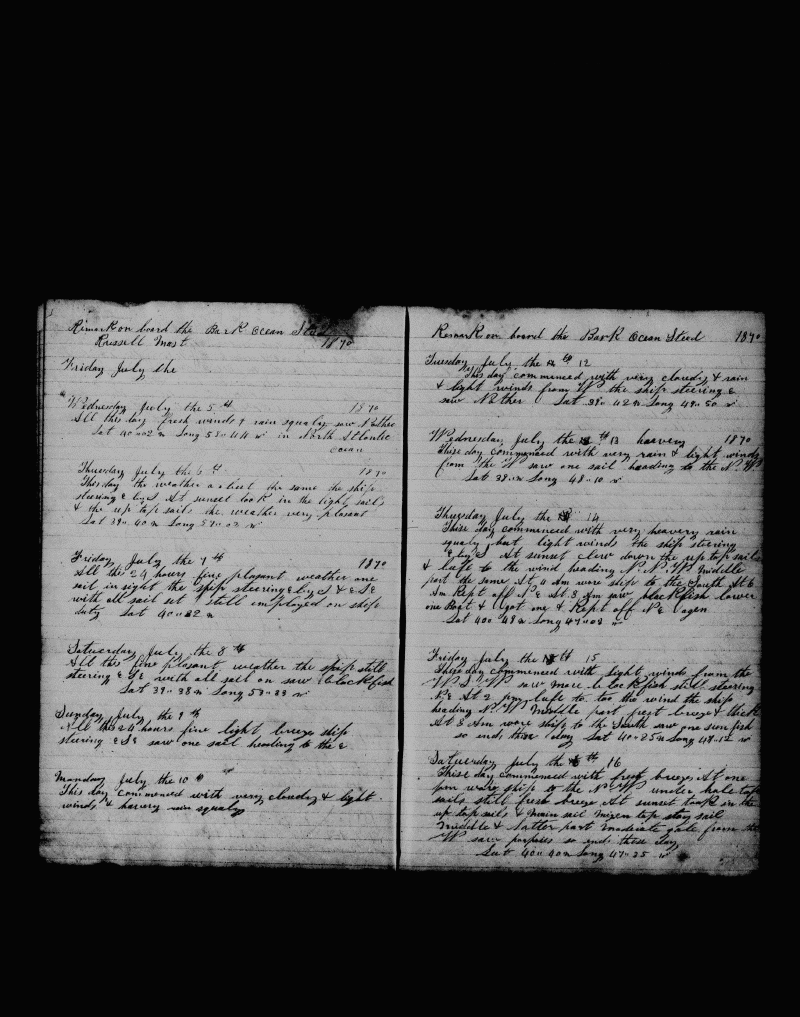 Remark on board the Bark Ocean Steed
Russell Mast 1870
Friday July the
Wednesday July the 5th 1870
All this day fresh winds & rain squaly saw Nother
Lat 40"02 n Long 53"44 w in North Atlantic
ocean
Thursday July the 6th 1870
This day the weather a bout the same the ship
steering E by S At sunset took in the light sails
& the up top sails the weather very plesant
Lat 39" 40 n Long 52"02 w
Friday July the 7th 1870
All this 24 hours fine plesant weather one
sail in sight the ship steering E by S & E S E
with all sail set still employed on ship
duty Lat 40"32 n
Saturday July the 8th
All this fine plesant weather the ship still
steering E S E with all sail on saw blackfish
Lat 39"38 n Long 50"33 w
Sunday July the 9th
All this 24 hours fine light breeze ship
steering E S E saw one sail heading to the E
Monday July the 10
This day commenced with very cloudy & light
winds & havery rain squaly
Remark on board the Bark Ocean Steed 1870
Tuesday July the th 12
This day commenced with very cloudy & rain
& light winds from W the ship steering E
saw Nother Lat 39" 42 n Long 49" 50 w
Wednesday July the th 13 havery 1870
These day commenced with very rain & light winds
from the W saw one sail heading to the N W
Lat 39 n Long 48"10 w
Thursday July the 14
These day commenced with very heavery rain
squaly but light winds the ship steering
E by S At sunset clew down the up top sails
& lufe to the wind heading N. N. W. Middle
part the same At 4 Am wore ship to the South At 6
Am Kept off N E At 8 Am saw blackfish lower
one Boat & got one & Kept off N E agen
Lat 40" 49 n Long 47"09 w
Friday July the th 15
These day commenced with light winds from the
W. S. W saw more blackfish still steering
N E At 2 pm lufe to too the wind the ship
heading N. W. Middle part frest breeze & thick
At 8 Am wore ship to the South saw one sun fish
so ends these day Lat 40"25 n Long 48"12 w
Saturday July the th 16
These day commenced with frest breeze At one
pm wore ship to the N. W under hole top
sails still fresh breeze At sunset took in the
up top sails & Main sail Mizen top stay sail
Middle & Latter part Modicate gale from the
W saw porpases so ends these day
Lat 40" 40 n Long 47"25 w